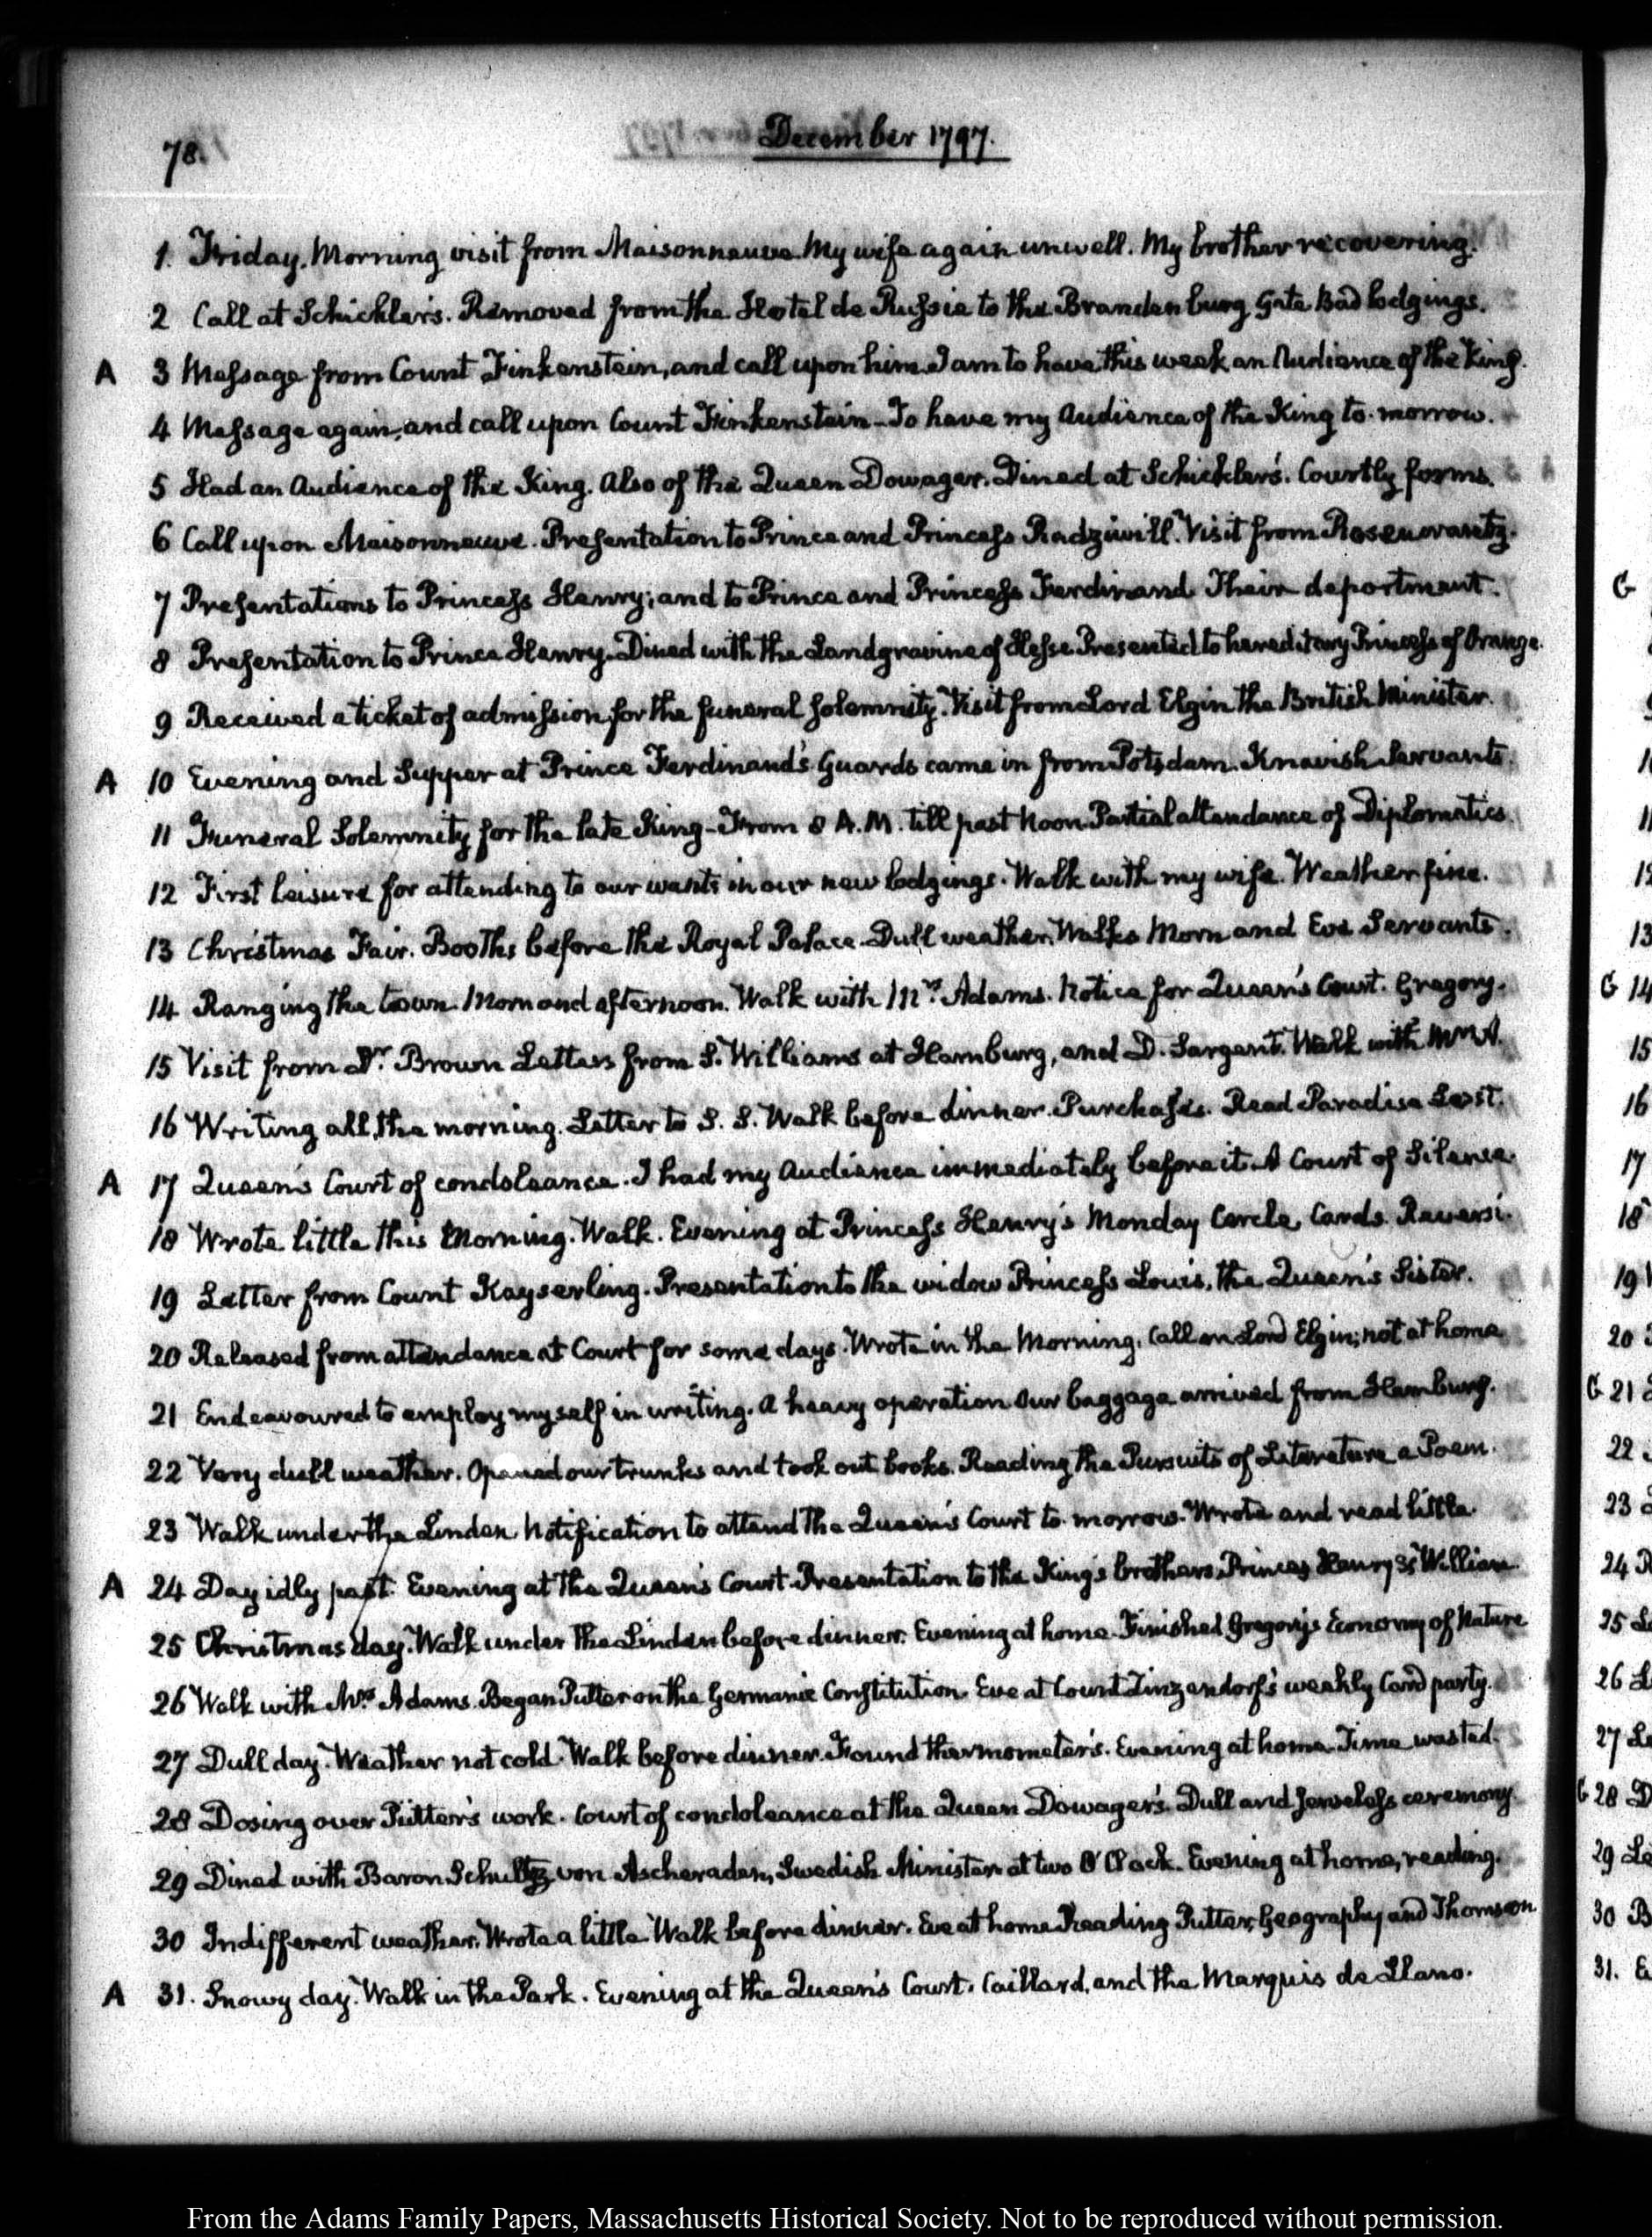 78.
December 1797.
1. Friday. Morning visit from Maisonneuve. My wife again unwell. My brother recovering.
2 Call at Schickler's. Removed from the Hotel de Russie to the Brandenburg Gate Bad lodgings.
A 3 Message from Count Finkenstein, and call upon him. I am to have this week an Audience of the King.
4 Message again, and call upon Count Finkenstein - To have my Audience of the King to-morrow.
5 Had an Audience of the King. Also of the Queen Dowager. Dined at Schickler's. Courtly forms.
6 Call upon Maisonneuve. Presentation to Prince and Princess Radziwill. Visit from Rosencrantz.
7 Presentations to Princess Henry; and to Prince and Princess Ferdinand. Their deportment.
8 Presentation to Prince Henry. Dined with the Landgravine of Hesse. Presented to hereditary Princess of Orange.
9 Received a ticket of admission for the funeral solemnity. Visit from Lord Elgin the British Minister.
A 10 Evening and Supper at Prince Ferdinand's. Guards came in from Potsdam. Knavish servants.
11 Funeral Solemnity for the late King - From 8 A.M. till past Noon. Partial attendance of Diplomatics.
12 First leisure for attending to our wants in our new lodgings. Walk with my wife. Weather fine.
13 Christmas Fair. Booths before the Royal Palace. Dull weather. Walks Morn and Eve Servants.
14 Ranging the town. Morn and afternoon. Walk with Mrs. Adams. Notice for Queen's Court. Gregory.
15 Visit from Dr. Brown Letters from S. Williams at Hamburg, and D. Sargent. Walk with Mrs A.
16 Writing all the morning. Letter to S. S. Walk before dinner. Purchases. Read Paradise Lost.
A 17 Queen's Court of condoleance. I had my Audience immediately before it. A Court of Silence.
18 Wrote little this Morning. Walk. Evening at Princess Henry's Monday Circle, Cards. Reversi.
19 Letter from Count Kayserling. Presentation to the widow Princess Louis, the Queen's Sister.
20 Released from attendance at Court for some days. Wrote in the Morning. Call on Lord Elgin; not at home
21 Endeavoured to employ myself in writing. A heavy operation Our baggage arrived from Hamburg.
22 Very dull weather. Opened our trunks and took out books. Reading the Pursuits of Literature a Poem.
23 Walk under the Linden. Notification to attend the Queen's Court to-morrow. Wrote and read little.
A 24 Day idly past. Evening at the Queen's Court. Presentation to the King's brothers, Princes Henry & William.
25 Christmas day. Walk under the Linden before dinner. Evening at home. Finished Gregory's Economy of Nature
26 Walk with Mrs Adams. Began Putter on the Germanic Constitution. Eve at Count Zinzendorf's weekly Card party.
27 Dull day. Weather not cold. Walk before dinner. Found thermometers. Evening at home. Time wasted.
28 Dosing over Pütter's work. Court of condoleance at the Queen Dowager's. Dull and senseless ceremony.
29 Dined with Baron Schultz von Ascheraden, Swedish Minister at two O'Clock. Evening at home, reading.
30 Indifferent weather. Wrote a little. Walk before dinner. Eve at home Reading Putter, Geography and Thomson
A 31. Snowy day. Walk in the Park. Evening at the Queen's Court. Caillard, and the Marquis de Llano.
From the Adams Family Papers, Massachusetts Historical Society. Not to be reproduced without permission.